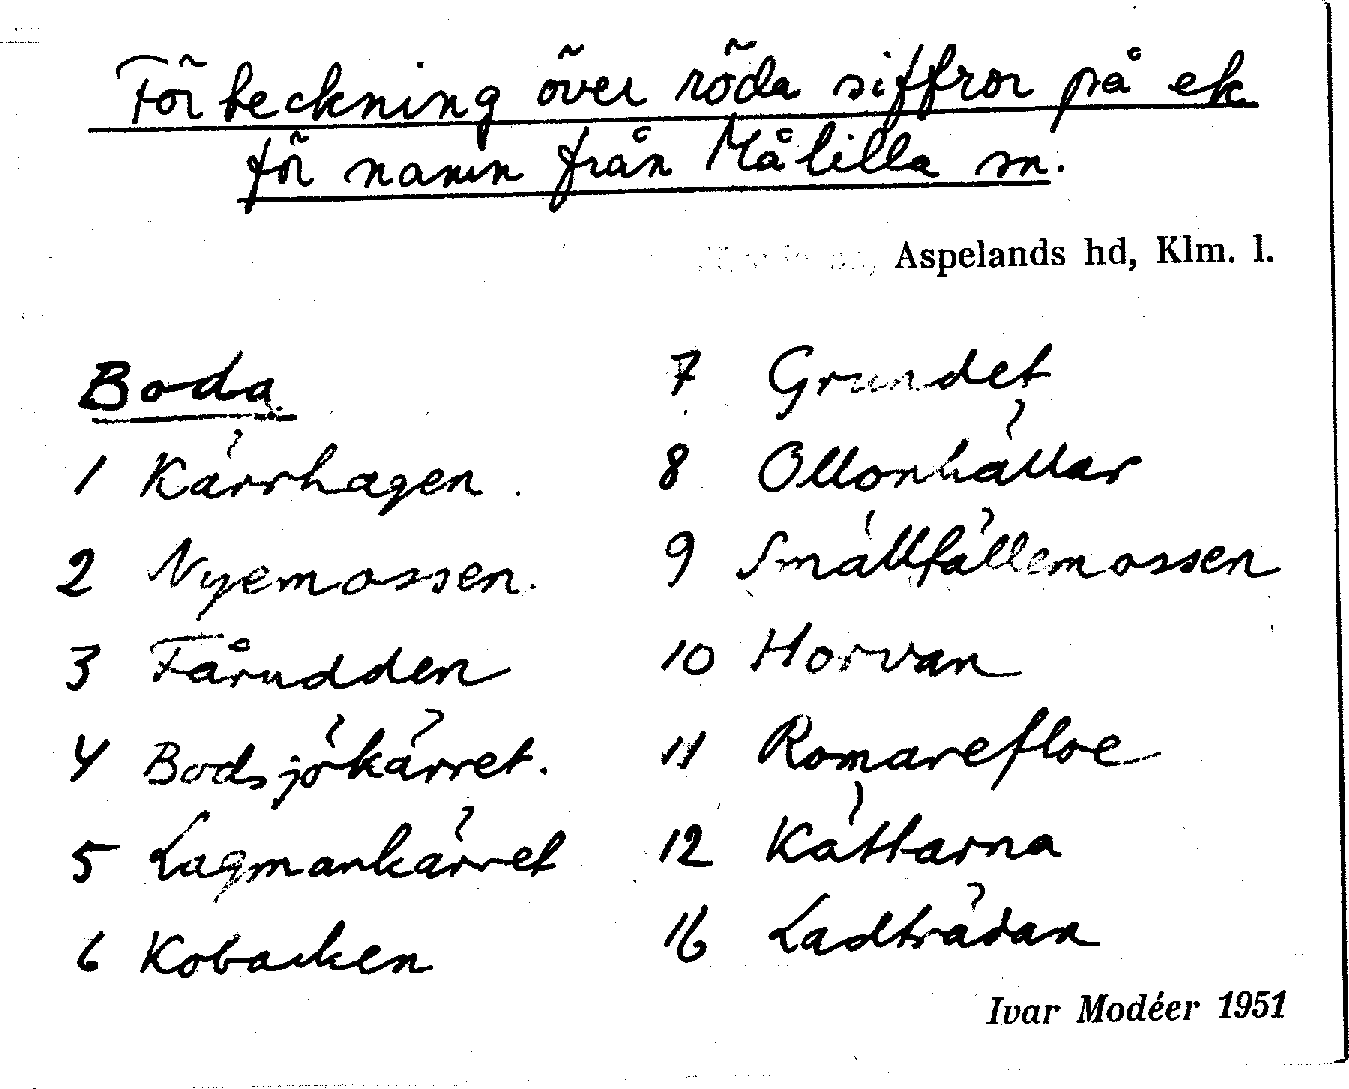 Förteckning över röda siffror på ek
för namn från Målilla sn.
Aspelands hd, Klm. l.
Boda
1 Kärrhagen
2 Nyemossen.
3 Fårudden
4 Bodsjökärret.
5 Lagmankärret
6 Kobacken
7 Grundet
8 Ollonhällar
9 Smällfällemossen
10 Horvan
11 Romarefloe
12 Kättarna
16 Ladträdan
Ivar Modéer 1951